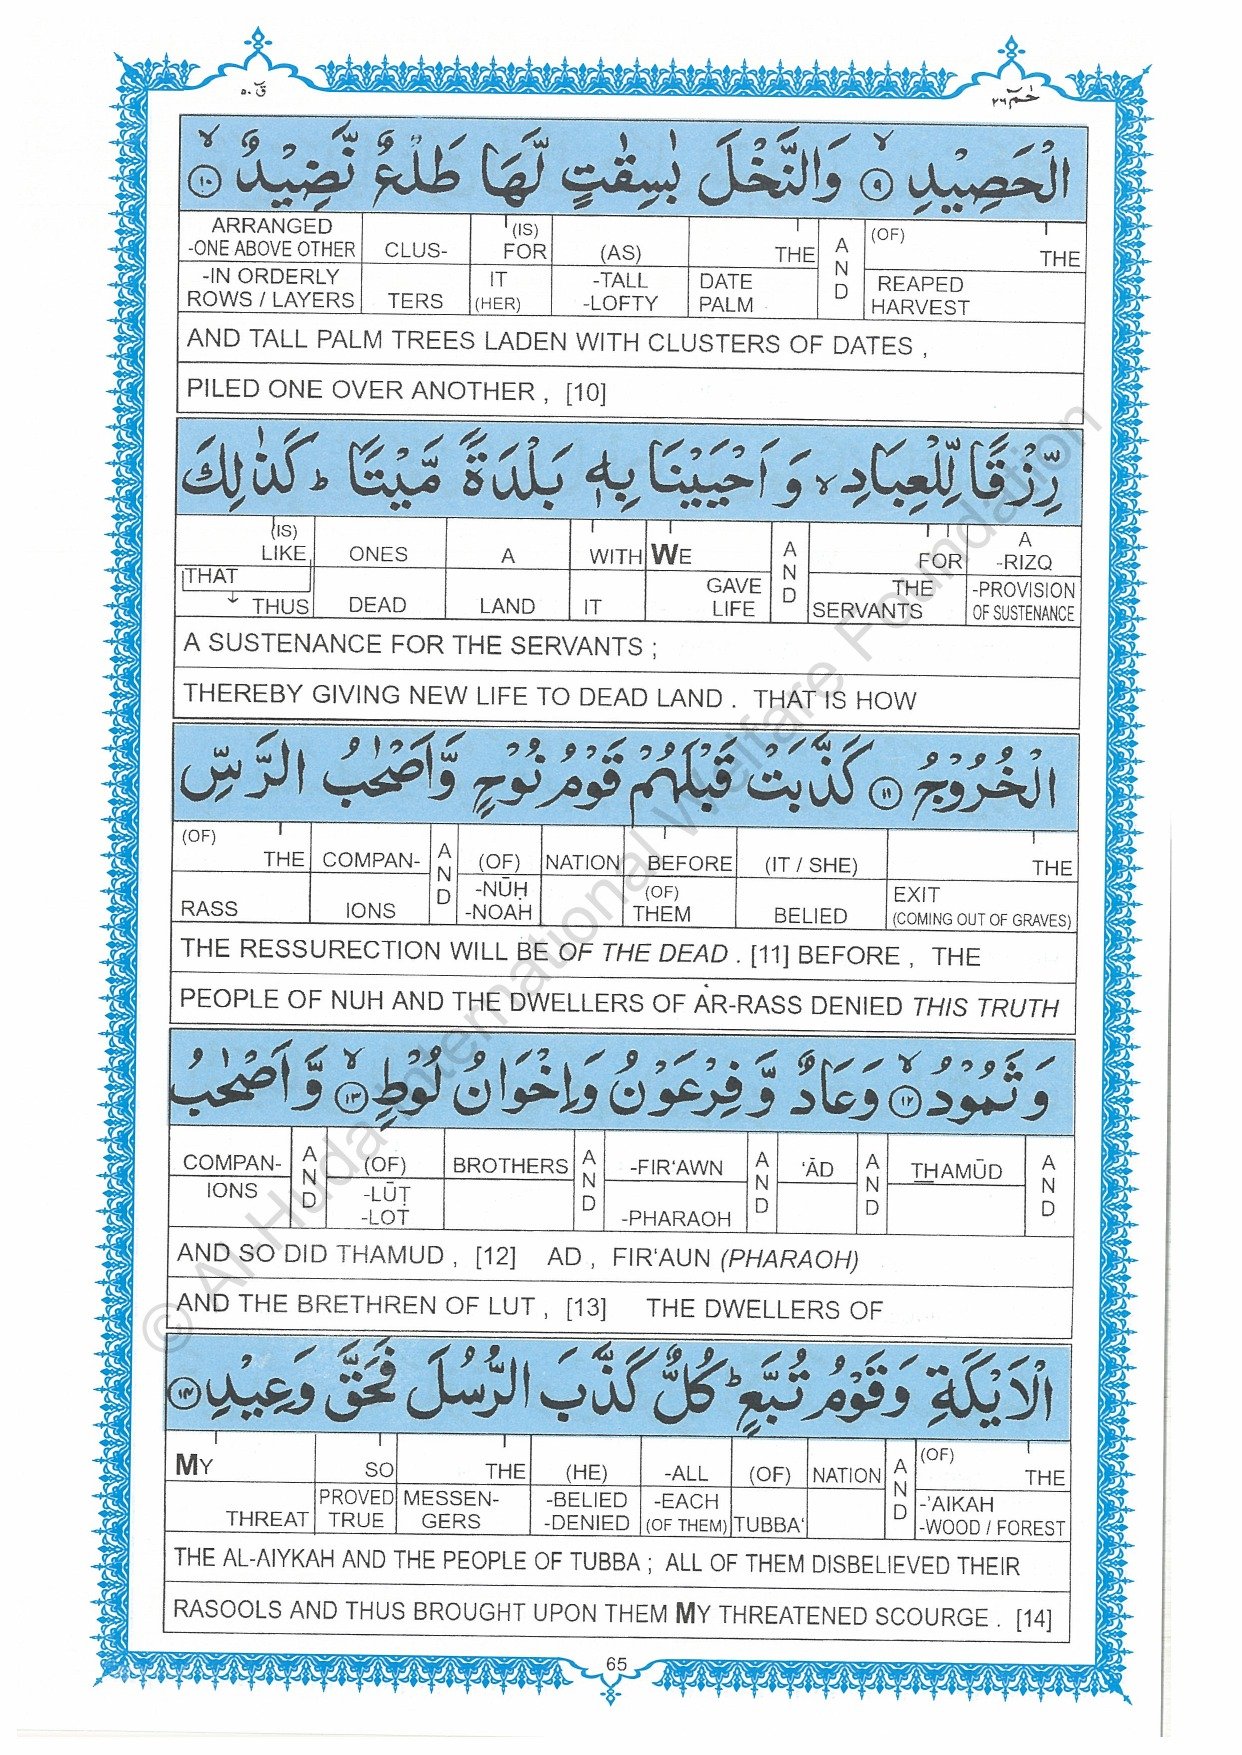 قٓ ٥٠
حٰمٓ ٢٦
الْحَصِيْدِ ۙ‏﴿٩﴾ وَالنَّخْلَ بٰسِقٰتٍ لَّهَا طَلْعٌ نَّضِيْدٌ ۙ‏﴿١٠﴾
ARRANGED CLUS- (IS) FOR (AS) THE AND (OF) THE
-ONE ABOVE OTHER
-IN ORDERLY IT -TALL DATE REAPED
ROWS / LAYERS TERS (HER) -LOFTY PALM HARVEST
AND TALL PALM TREES LADEN WITH CLUSTERS OF DATES ,
PILED ONE OVER ANOTHER , [10]
رِّزْقًا لِّلْعِبَادِ ۙ وَ اَحْيَيْنَا بِهٖ بَلْدَةً مَّيْتًا ؕ كَذٰلِكَ
(IS) LIKE ONES A WITH WE AND FOR A -RIZQ
THAT GAVE THE -PROVISION
THUS DEAD LAND IT LIFE SERVANTS OF SUSTENANCE
A SUSTENANCE FOR THE SERVANTS ;
THEREBY GIVING NEW LIFE TO DEAD LAND . THAT IS HOW
الْخُرُوْجُ ﴿١١﴾ كَذَّبَتْ قَبْلَهُمْ قَوْمُ نُوْحٍ وَّاَصْحٰبُ الرَّسِّ
(OF) THE COMPAN- AND (OF) NATION BEFORE (IT / SHE) THE
-NŪḤ (OF) EXIT
RASS IONS -NOAH THEM BELIED (COMING OUT OF GRAVES)
THE RESSURECTION WILL BE OF THE DEAD . [11] BEFORE , THE
PEOPLE OF NUH AND THE DWELLERS OF AR-RASS DENIED THIS TRUTH
وَ ثَمُوْدُ ۙ‏﴿١٢﴾ وَعَادٌ وَّ فِرْعَوْنُ وَاِخْوَانُ لُوْطٍ ۙ‏﴿١٣﴾ وَّ اَصْحٰبُ
COMPAN- AND (OF) BROTHERS AND -FIR‘AWN AND ‘ĀD AND THAMŪD AND
IONS -LŪṬ
-LOT -PHARAOH
AND SO DID THAMUD , [12] AD , FIR‘AUN (PHARAOH)
AND THE BRETHREN OF LUT , [13] THE DWELLERS OF
الْاَيْكَةِ وَ قَوْمُ تُبَّعٍ ؕ كُلٌّ كَذَّبَ الرُّسُلَ فَحَقَّ وَعِيْدِ ﴿١٤﴾
MY SO THE (HE) -ALL (OF) NATION AND (OF) THE
PROVED MESSEN- -BELIED -EACH -’AIKAH
THREAT TRUE GERS -DENIED (OF THEM) TUBBA‘ -WOOD / FOREST
THE AL-AIYKAH AND THE PEOPLE OF TUBBA ; ALL OF THEM DISBELIEVED THEIR
RASOOLS AND THUS BROUGHT UPON THEM MY THREATENED SCOURGE . [14]
65
© Al Huda International Welfare Foundation